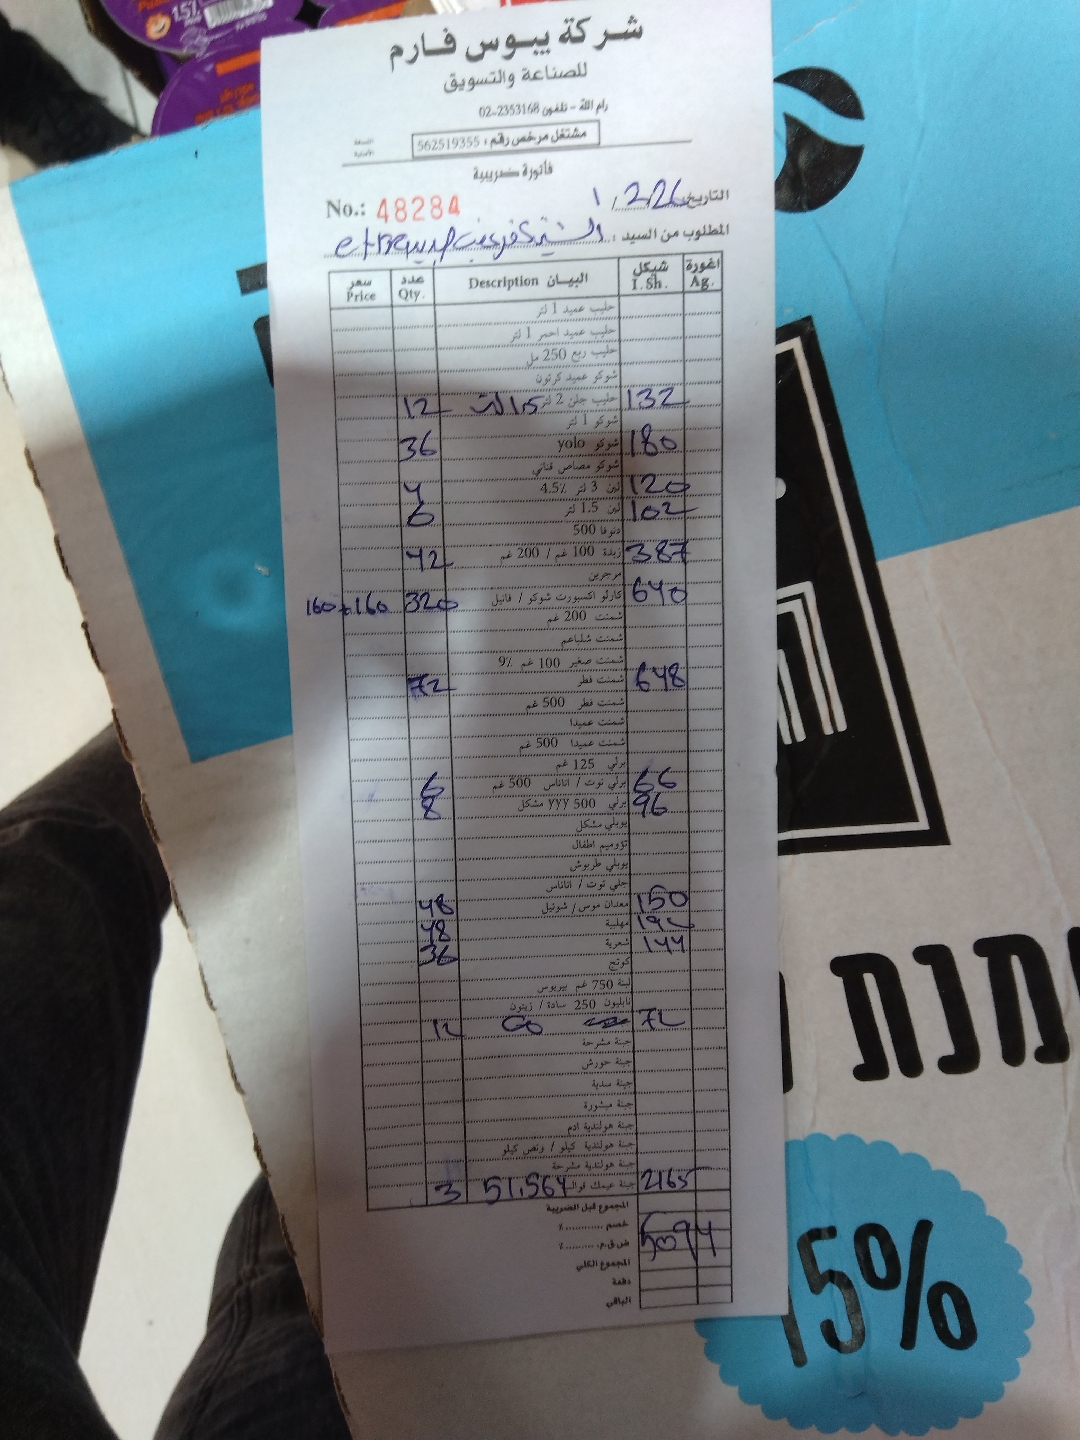 شركة يبوس فارم
للصناعة والتسويق
رام الله - تلفون 02-2353168
مشتغل مرخص رقم : 562519355
فاتورة ضريبية
No.: 48284
التاريخ 1/2/26
المطلوب من السيد :
سعر Price عدد Qty. البيان Description شيكل I.Sh. اغورة Ag.
حليب عميد 1 لتر
حليب عميد احمر 1 لتر
حليب ربيع 250 مل
شوكو عميد كرتون
12 حليب جلن 2 لتر 1.5 لتر 132
شوكو 1 لتر
36 شوكو yolo 180
شوكو مصاص قناني
4 لبن 3 لتر 4.5٪ 120
6 لبن 1.5 لتر 102
دنوفا 500
42 زبدة 100 غم / 200 غم 387
مرجرين
160+160 320 كارلو اكسبورت شوكو / فانيل 640
شمنت 200 غم
شمنت شلباعم
شمنت صغير 100 غم 9٪
72 شمنت فطر 648
شمنت فطر 500 غم
شمنت عميدا
شمنت عميدا 500 غم
برلي 125 غم
6 برلي توت / اناناس 500 غم 66
8 برلي 500 yyy مشكل 96
يوبلي مشكل
تؤوميم اطفال
يوبلي طربوش
جلي توت / اناناس
48 معدان موس / شوتيل 150
48 مهلبية 192
36 شعرية 144
كوتج
لبنة 750 غم بيريوس
نابليون 250 سادة / زيتون
12 72
جبنة مشرحة
جبنة حورش
جبنة سدية
جبنة مبشورة
جبنة هولندية ادم
جبنة هولندية كيلو / ونص كيلو
جبنة هولندية مشرحة
3 جبنة عيمك قوالب 51.564 2165
المجموع قبل الضريبة
خصم ............ ٪
ض.ق.م. ......... ٪ 5094
المجموع الكلي
دفعة
الباقي
15%